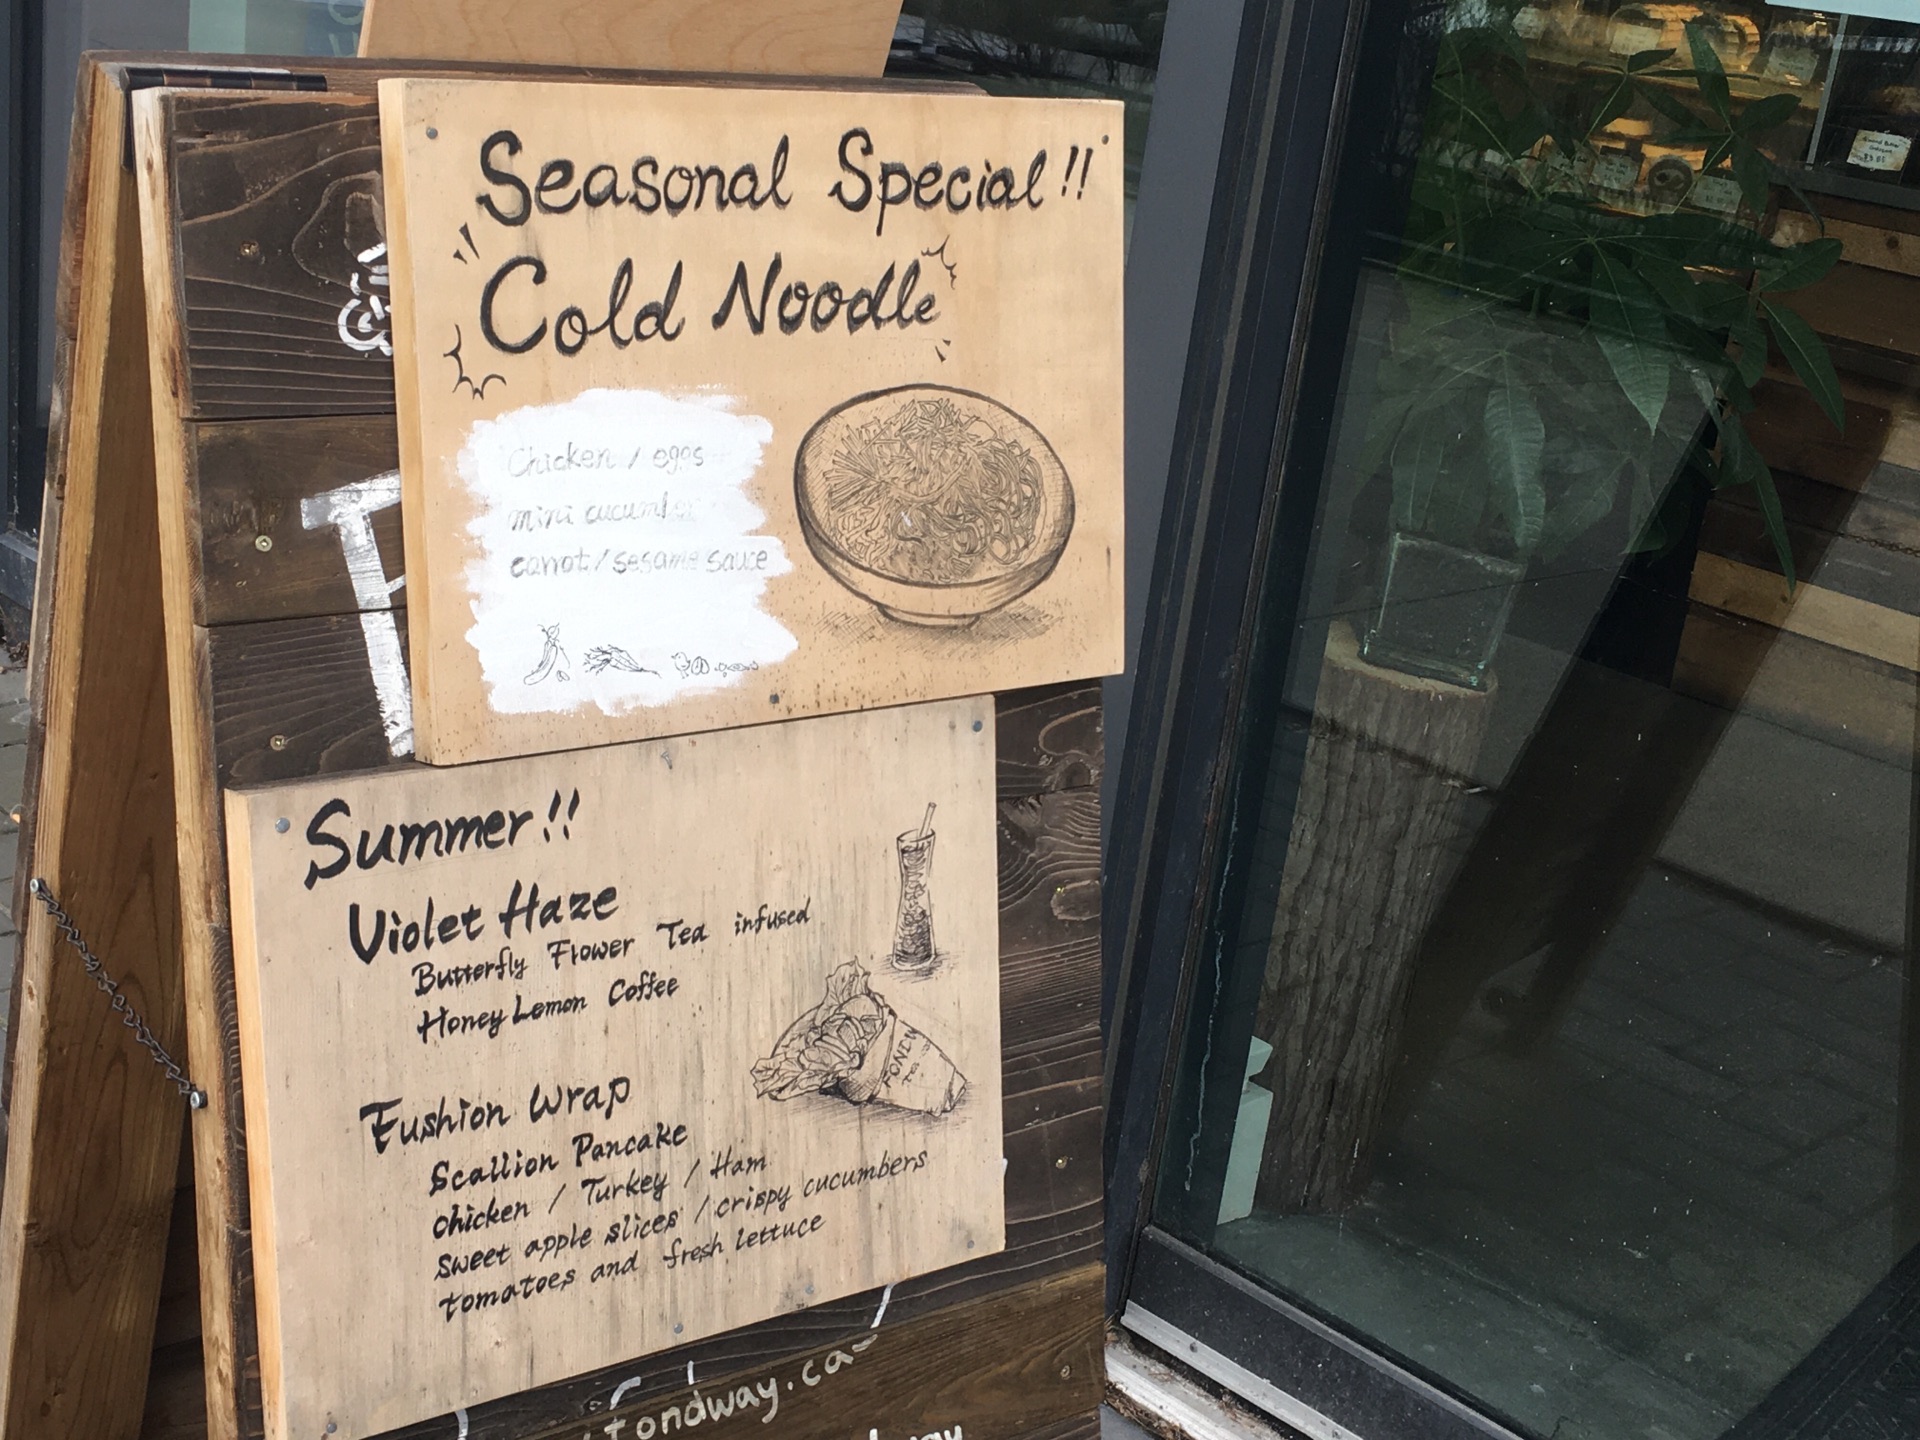 Seasonal Special!!
Cold Noodle
Chicken / eggs
mini cucumber
carrot/sesame sauce
Summer!!
Violet Haze
Butterfly Flower Tea infused
Honey Lemon Coffee
FONDW
Tea
Fushion Wrap
Scallion Pancake
chicken / Turkey / Ham
sweet apple slices / crispy cucumbers
tomatoes and fresh lettuce
fondway.ca